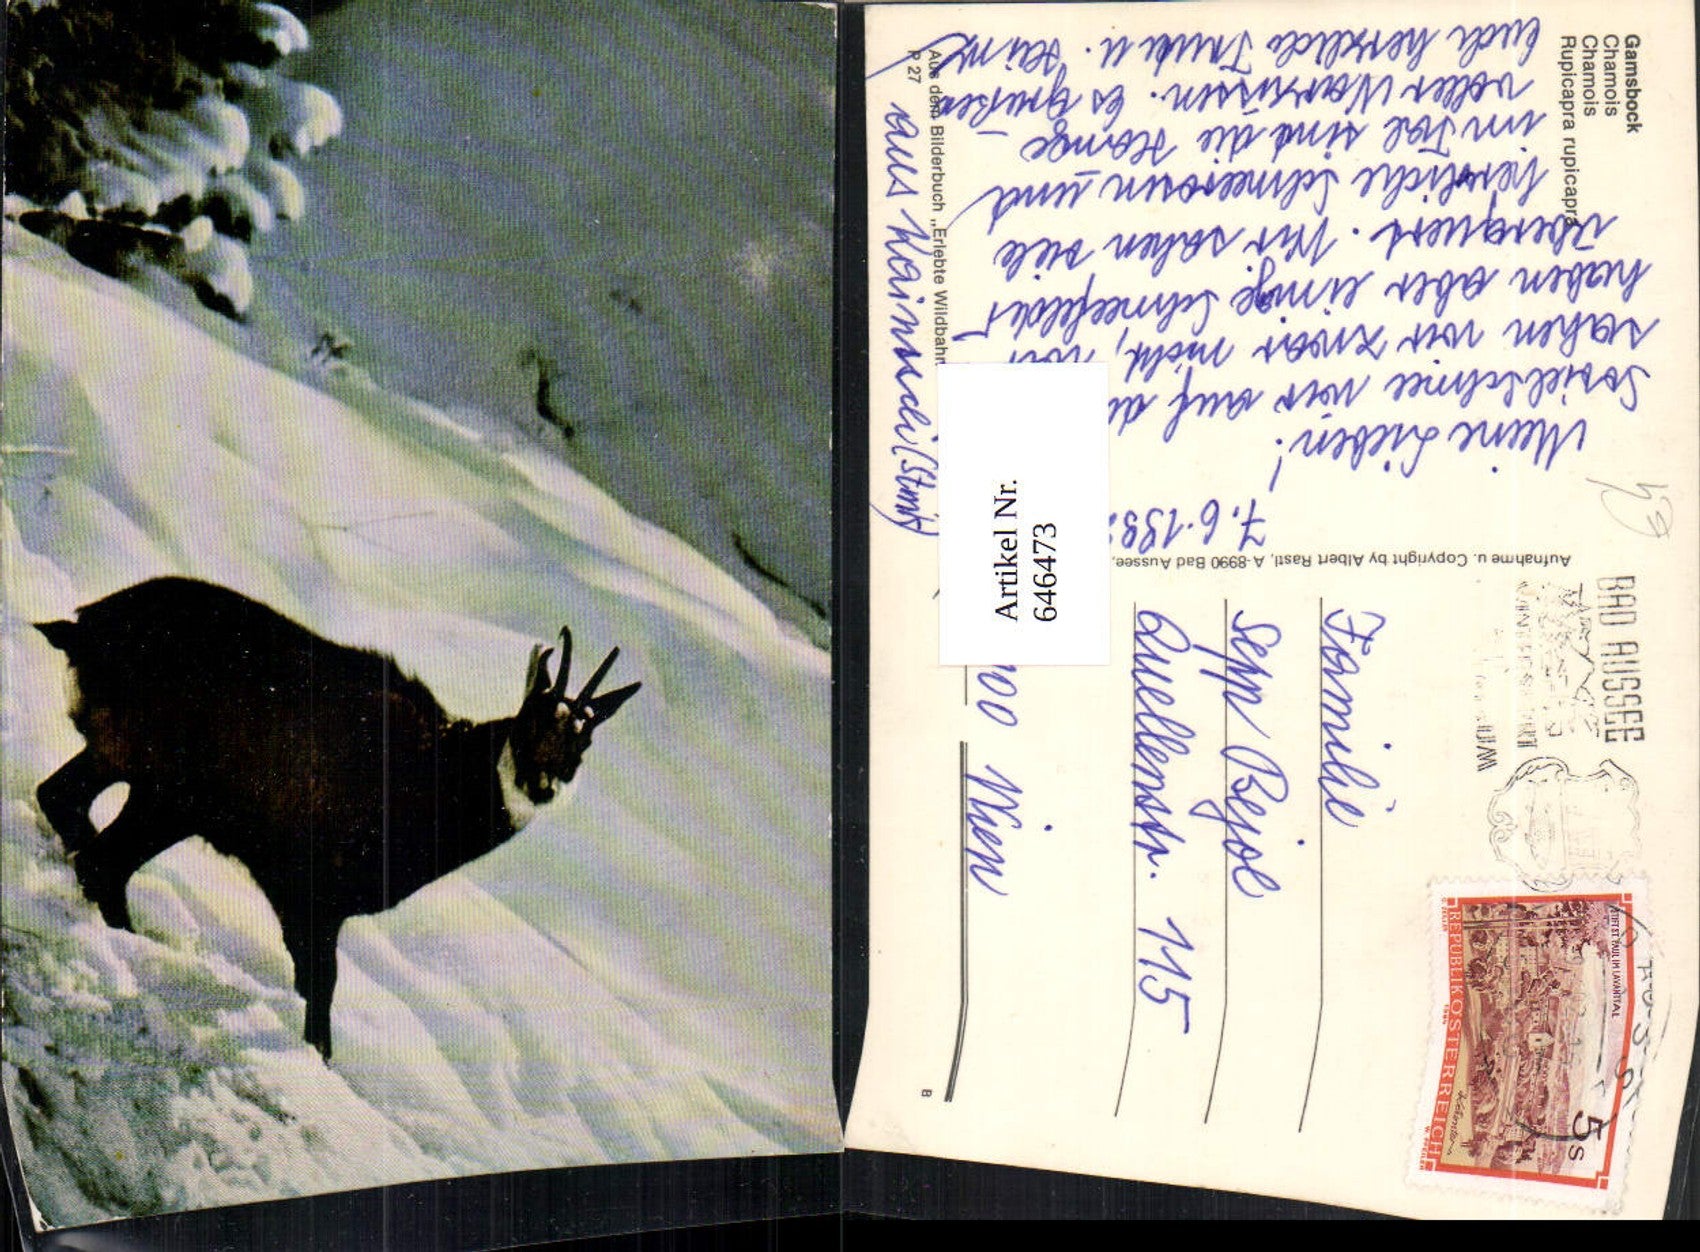 Gamsbock
Chamois
Chamois
Rupicapra rupicapra
7.6.199
Meine Lieben!
Soviel Schnee wir auf d
sahen wir zwar nicht, wir
haben aber einige Schneefelder
überquert. Wir sahen viele
herrliche Schneerosen und
im Tal sind die Hänge
voller Narzissen. Es grüßen
Euch herzlich Trude u. Heinz
aus Kainisch (Stmk)
Aus dem Bilderbuch „Erlebte Wildbahn
P 27
Aufnahme u. Copyright by Albert Rastl, A-8990 Bad Aussee,
Artikel Nr.
646473
BAD AUSSEE
REPUBLIK ÖSTERREICH
STIFT ST. PAUL IM LAVANTTAL
5 S
Familie
Sepp Bejol
Quellenstr. 115
00 Wien
B